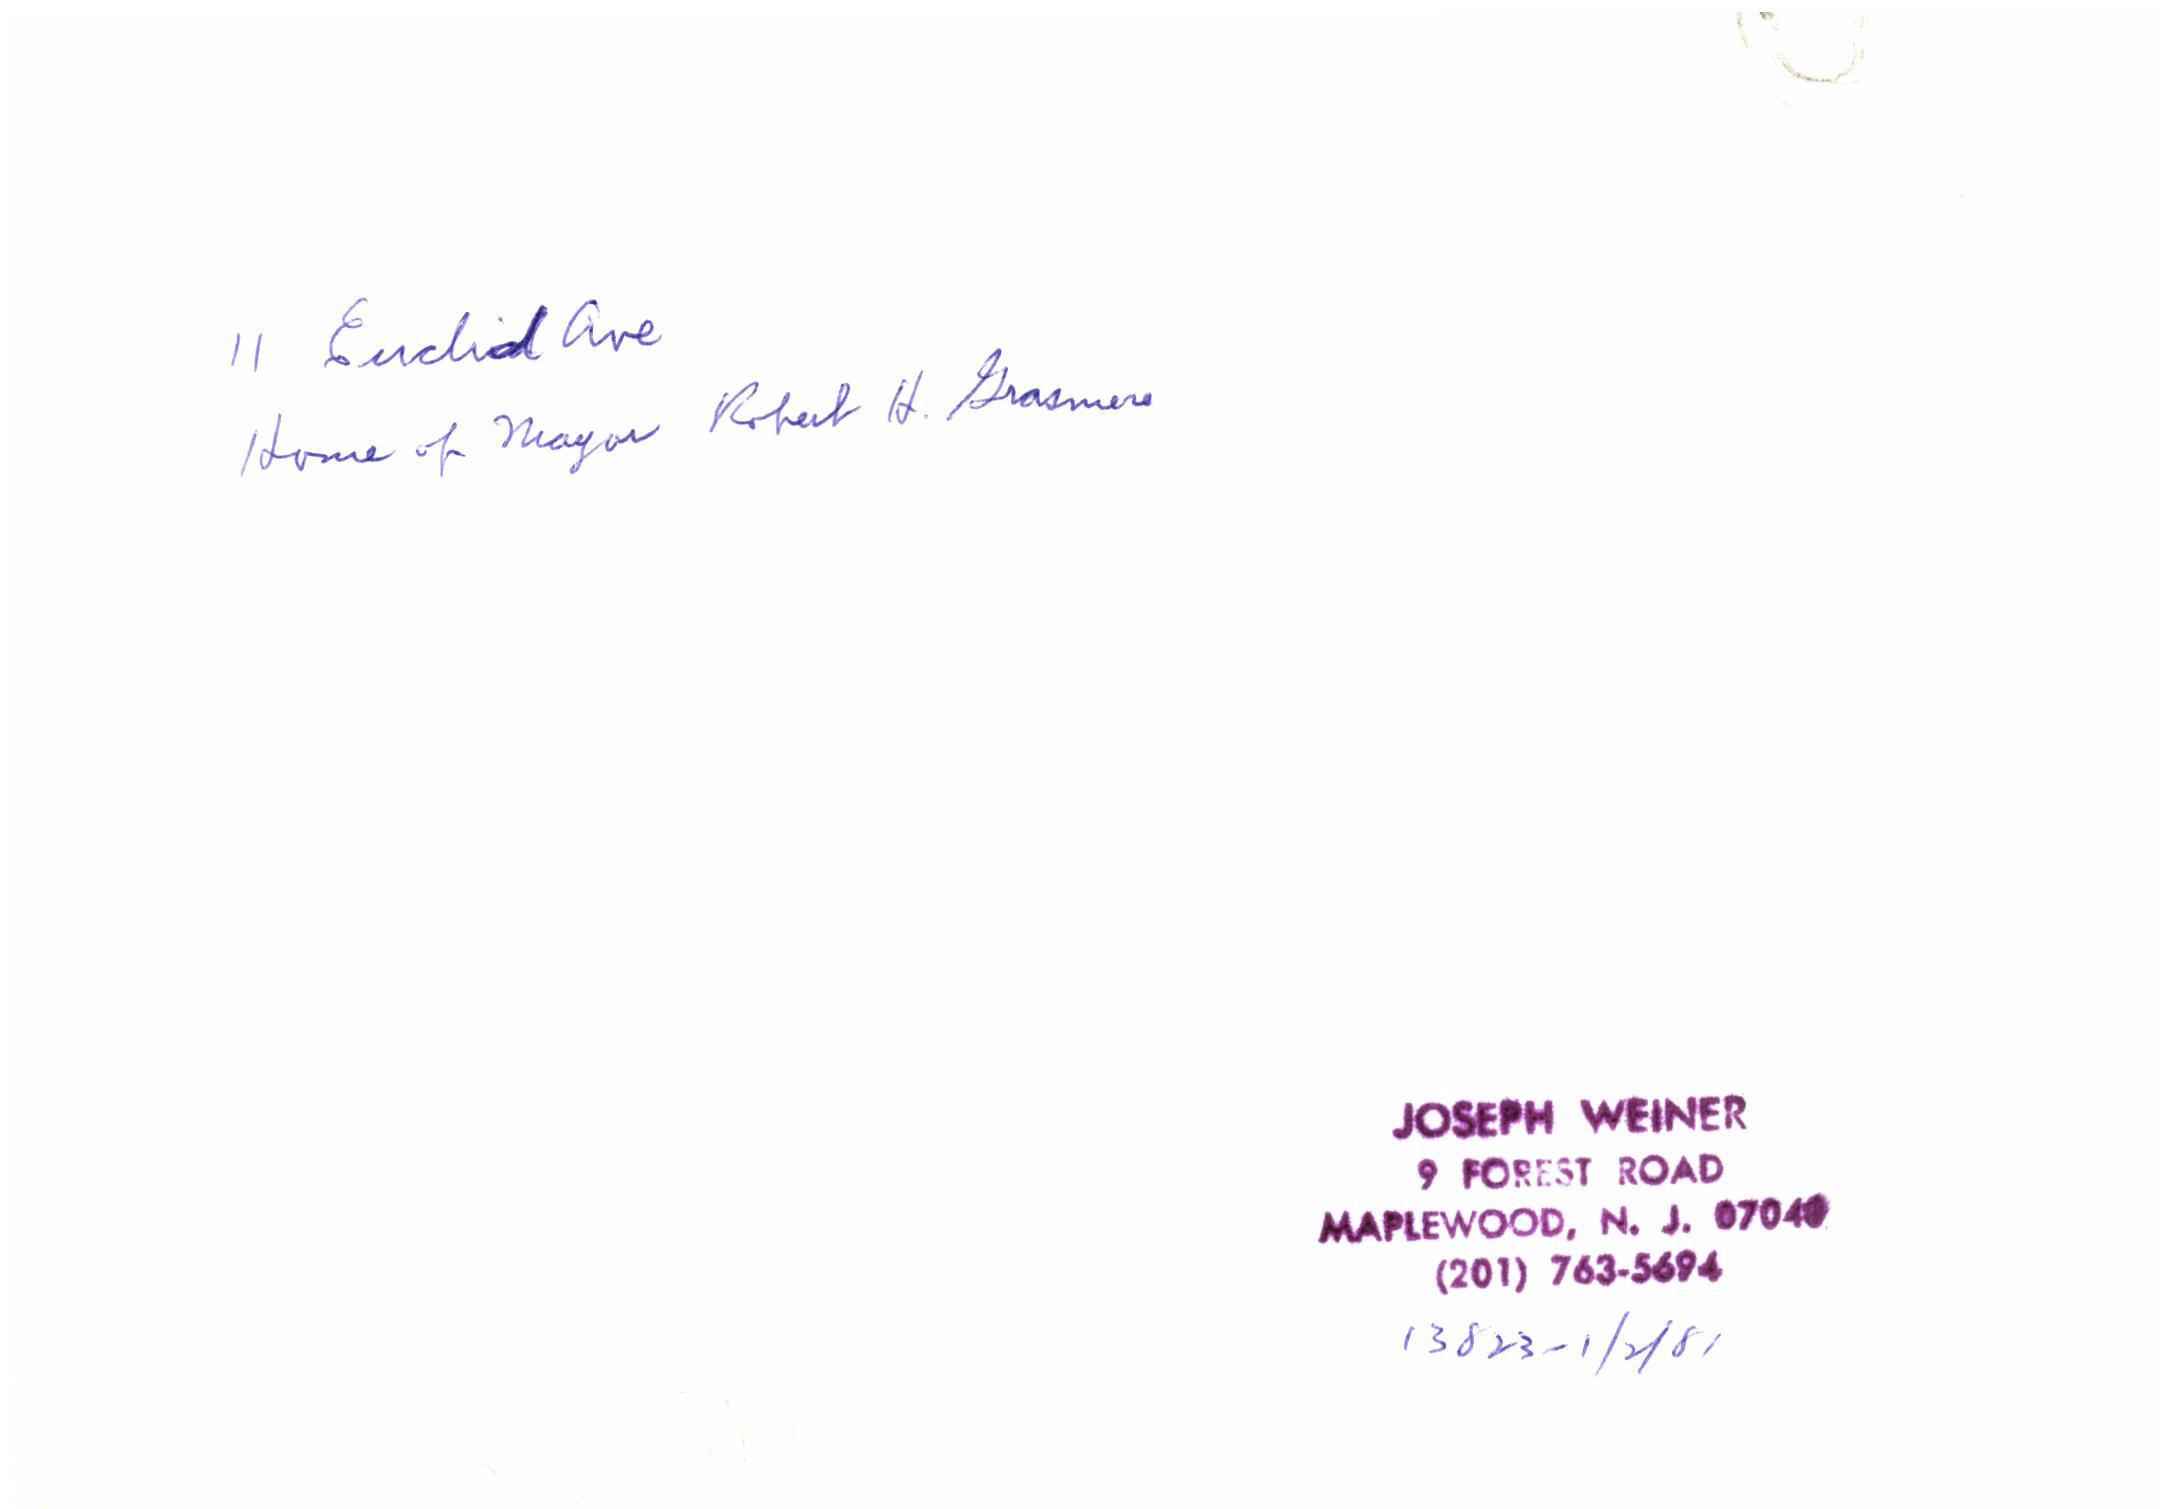 11 Euclid Ave
Home of Mayor Robert H. Grasmere
JOSEPH WEINER
9 FOREST ROAD
MAPLEWOOD, N. J. 07040
(201) 763-5694
13823-1/2/81